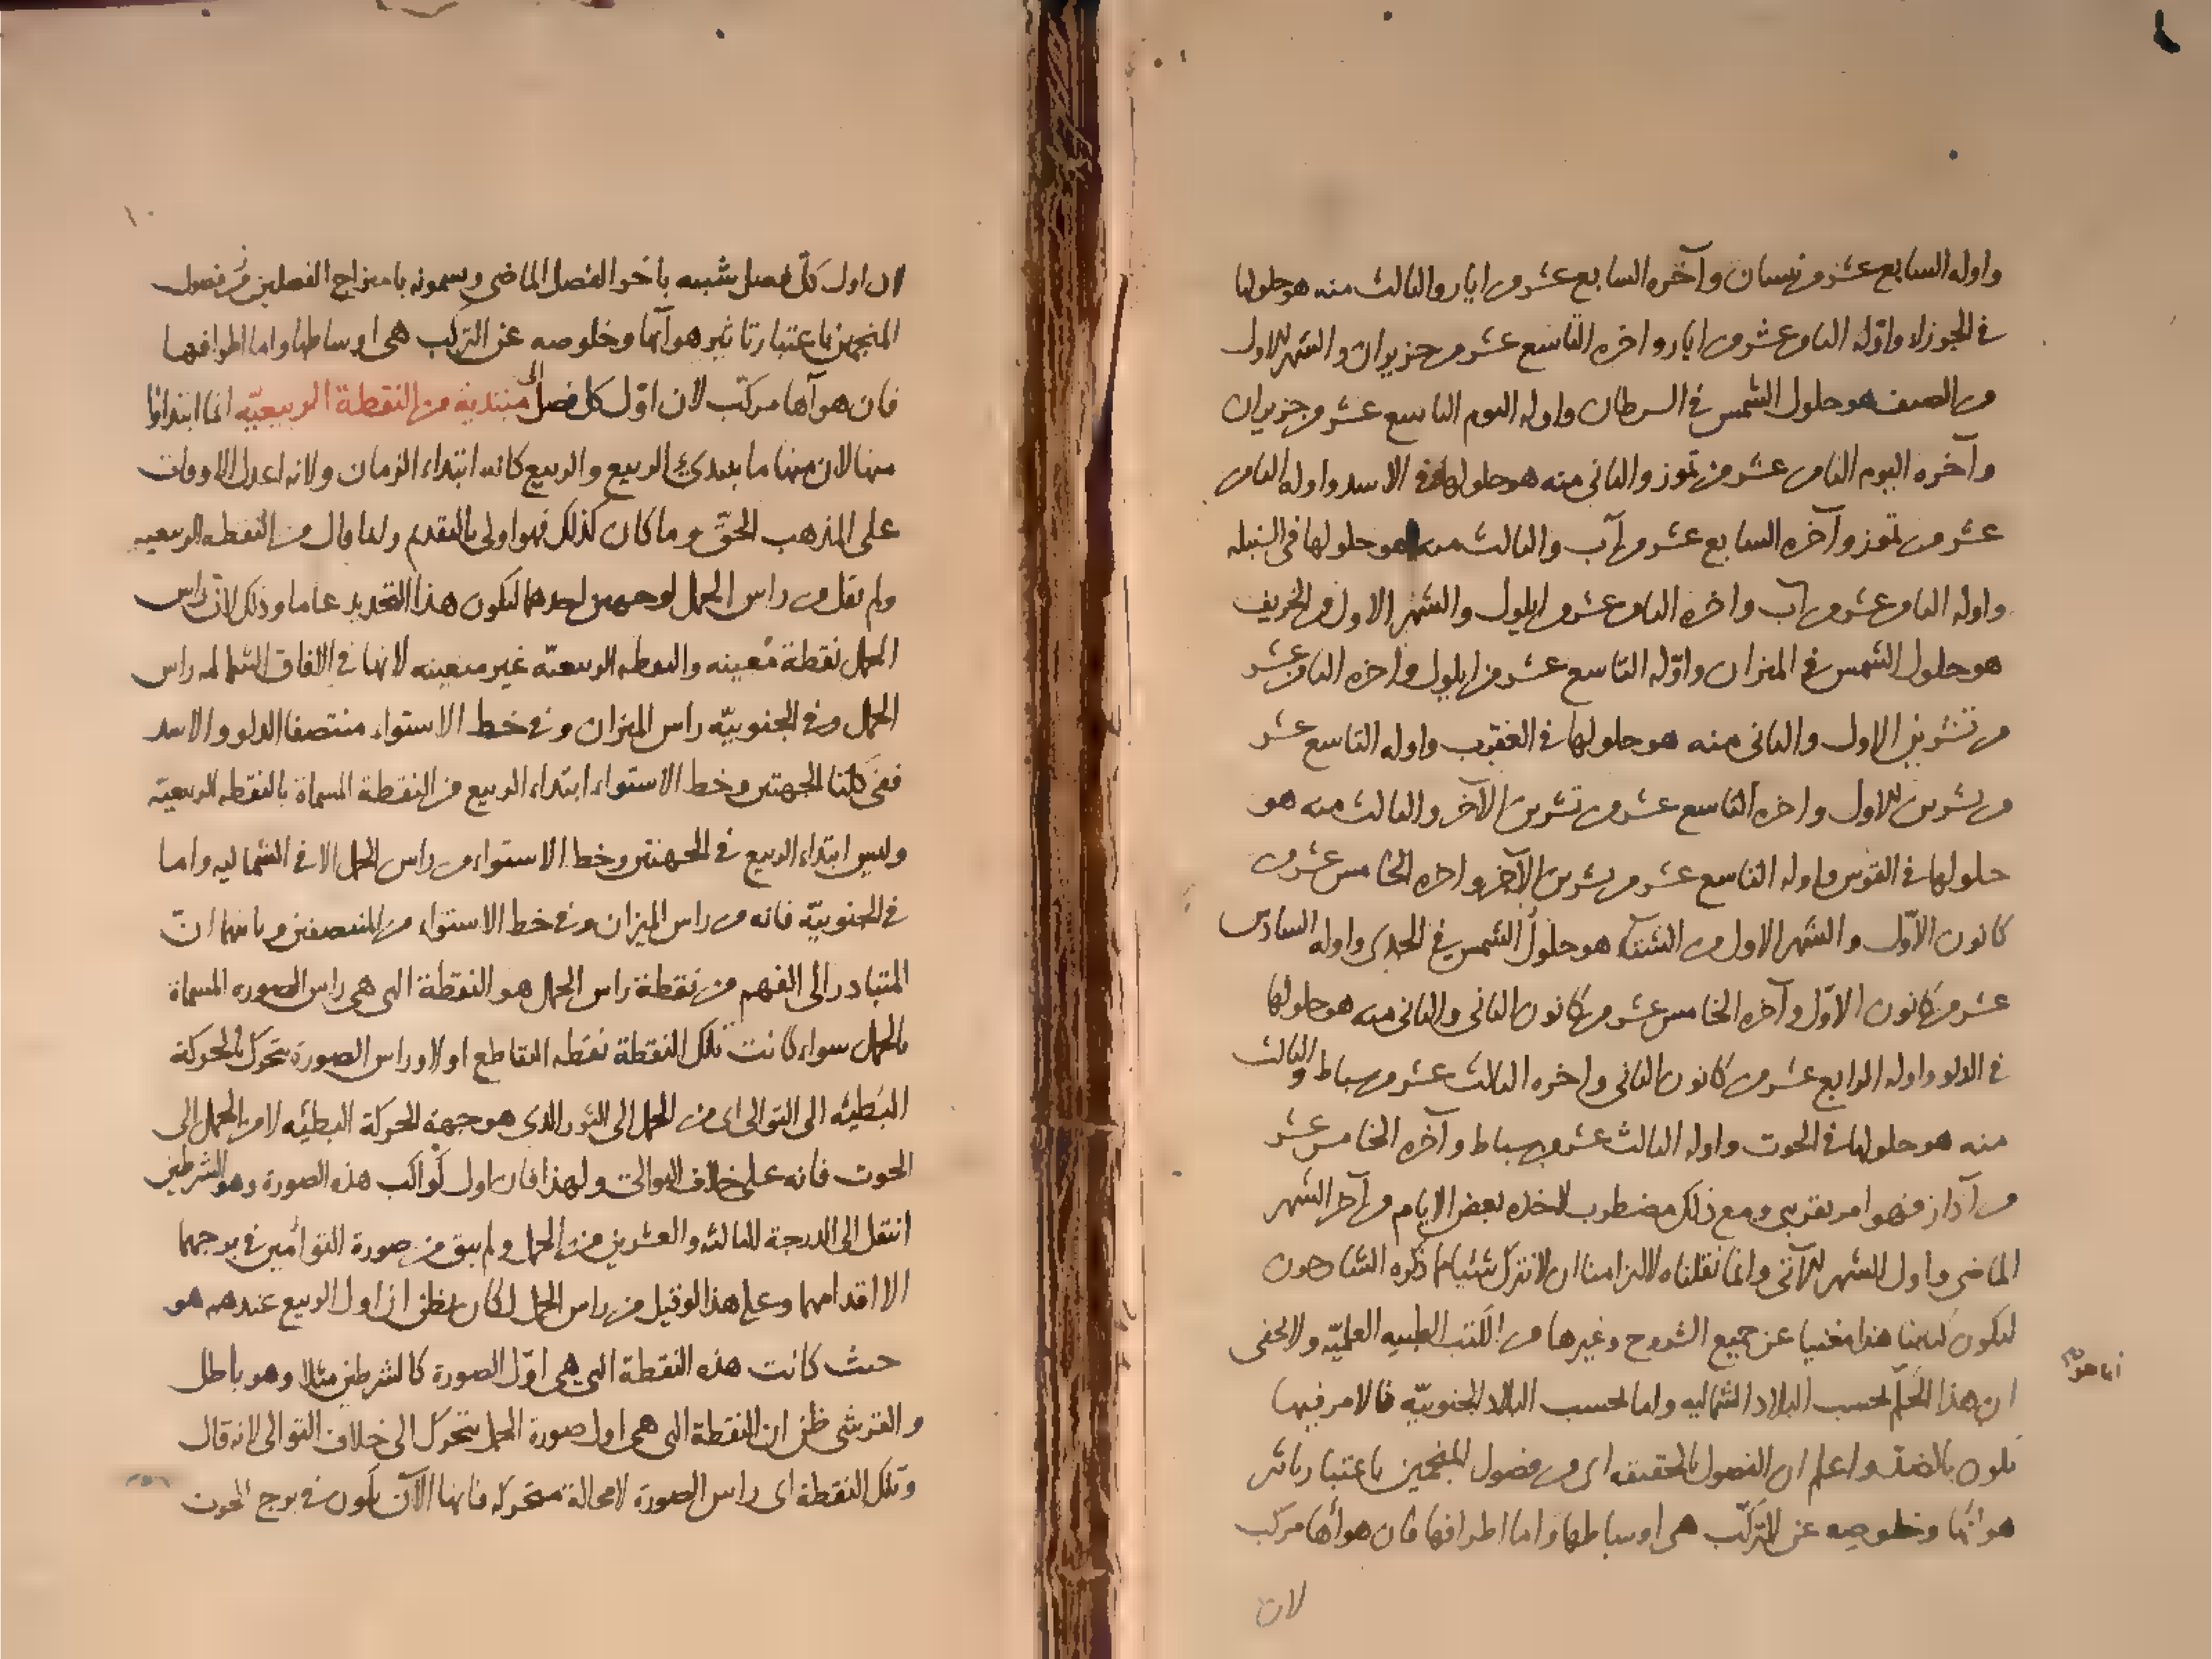 واوله السابع عشر من نيسان وآخره السابع عشر من ايار والثالث منه هو حلولها
في الجوزاء واوّله الثامن عشر من ايار واخره التاسع عشر من حزيران والشهر الاول
من الصيف هو حلول الشمس في السرطان واوله اليوم التاسع عشر من حزيران
وآخره اليوم الثامن عشر من تموز والثاني منه هو حلولها في الاسد واوله الثامن
عشر من تموز وآخره السابع عشر من آب والثالث منه هو حلولها في السنبله
واوله الثامن عشر من آب واخره الثامن عشر من ايلول والشهر الاول من الخريف
هو حلول الشمس في الميزان واوّله التاسع عشر من ايلول واخره الثامن عشر
من تشرين الاول والثاني منه هو حلولها في العقرب واوله التاسع عشر
من تشرين الاول واخره التاسع عشر من تشرين الآخر والثالث منه هو
حلولها في القوس واوله التاسع عشر من تشرين الآخر واخره الخامس عشر من
كانون الاوّل والشهر الاول من الشتاء هو حلول الشمس في الجدي واوله السادس
عشر من كانون الاوّل وآخره الخامس عشر من كانون الثاني والثاني منه هو حلولها
في الدلو واوله الرابع عشر من كانون الثاني واخره الثالث عشر من سباط والثالث
منه هو حلولها في الحوت واوله الثالث عشر من سباط وآخره الخامس عشر
من آدار فهو امر تقريبي ومع ذلك مضطرب لاخذه بعض الايام من آخر الشهر
الماضي واول الشهر الآتي وانما نقلناه لالتزامنا ان لا نترك شيئا مما ذكره الشارحون
ليكون كتابنا هذا مغنيا عن جميع الشروح وغيرها من الكتب الطبيه العلميّه ولا يخفى
ان هذا الحكم بحسب البلاد الشماليه واما بحسب البلاد الجنوبيّه فالامر فيها
انما هو
يكون بالضد واعلم ان الفصول بالحقيقه اى من فصول المنجمين باعتبار تاثير
هوائها وخلوصه عن التركّب هي اوساطها واما اطرافها فان هوأها مركب
لان
لان اول كلّ فصل شبيه باخر الفصل الماضي ويسمونه بامتزاج الفصلين من فصول
المنجمين باعتبار تاثير هوآئها وخلوصه عن التركب هي اوساطها واما اطرافها
فان هوآها مركّب لان اوّل كل فصل مبتدئة من النقطة الربيعيّه انما ابتداؤا
منها لان منها ما يبتدئ الربيع والربيع كانه ابتداء الزمان ولانه اعدل الاوقات
على المذهب الحقّ وما كان كذلك فهو اولى بالتقدم وانما قال من النقطه الربيعيه
ولم يقل من راس الحمل لوجهين احدهما ليكون هذا التحديد عاما وذلك لانّ راس
الحمل نقطة مُعينه والنقطه الربيعيّه غير متعينه لانها في الافاق الشماليه راس
الحمل وفي الجنوبيّه راس الميزان وفي خط الاستواء منتصفا الدلو والاسد
ففي كلتا الجهتين وخط الاستواء ابتداء الربيع من النقطة المسماة بالنقطه الربيعيّه
وليس ابتداء الربيع في الجهتين وخط الاستواء من راس الحمل الا في الشماليه واما
في الجنوبيّه فانه من راس الميزان وفي خط الاستواء من المنتصفين وثانيهما انّ
المتبادر الى الفهم من نقطة راس الحمل هو النقطة التي هي راس الصوره المسماة
بالحمل سواء كانت تلك النقطة نقطه التقاطع او لا وراس الصورة يتحرك بالحركة
البطيئه الى التوالي اى من الحمل الى الثور الذى هو جهة الحركة البطيئه لا من الحمل الى
الحوت فانه على خلاف التوالي ولهذا فان اول كواكب هذه الصورة وهو الشرطين
انتقل الى الدرجة الثالثه والعشرين من الحمل ولم يبق من صورة التوأمين في برجهما
الا اقدامهما وعلى هذا لو قيل من راس الحمل لكان يظن ان اول الربيع عندهم هو
حيث كانت هذه النقطة التي هي اوّل الصورة كالشرطين مثلا وهو باطل
والقرشي ظن ان النقطة التي هي اول صورة الحمل يتحرك الى خلاف التوالى لانه قال
وتلك النقطة اى راس الصورة لا محالة متحركه فانها الآن يكون في برج الحوت